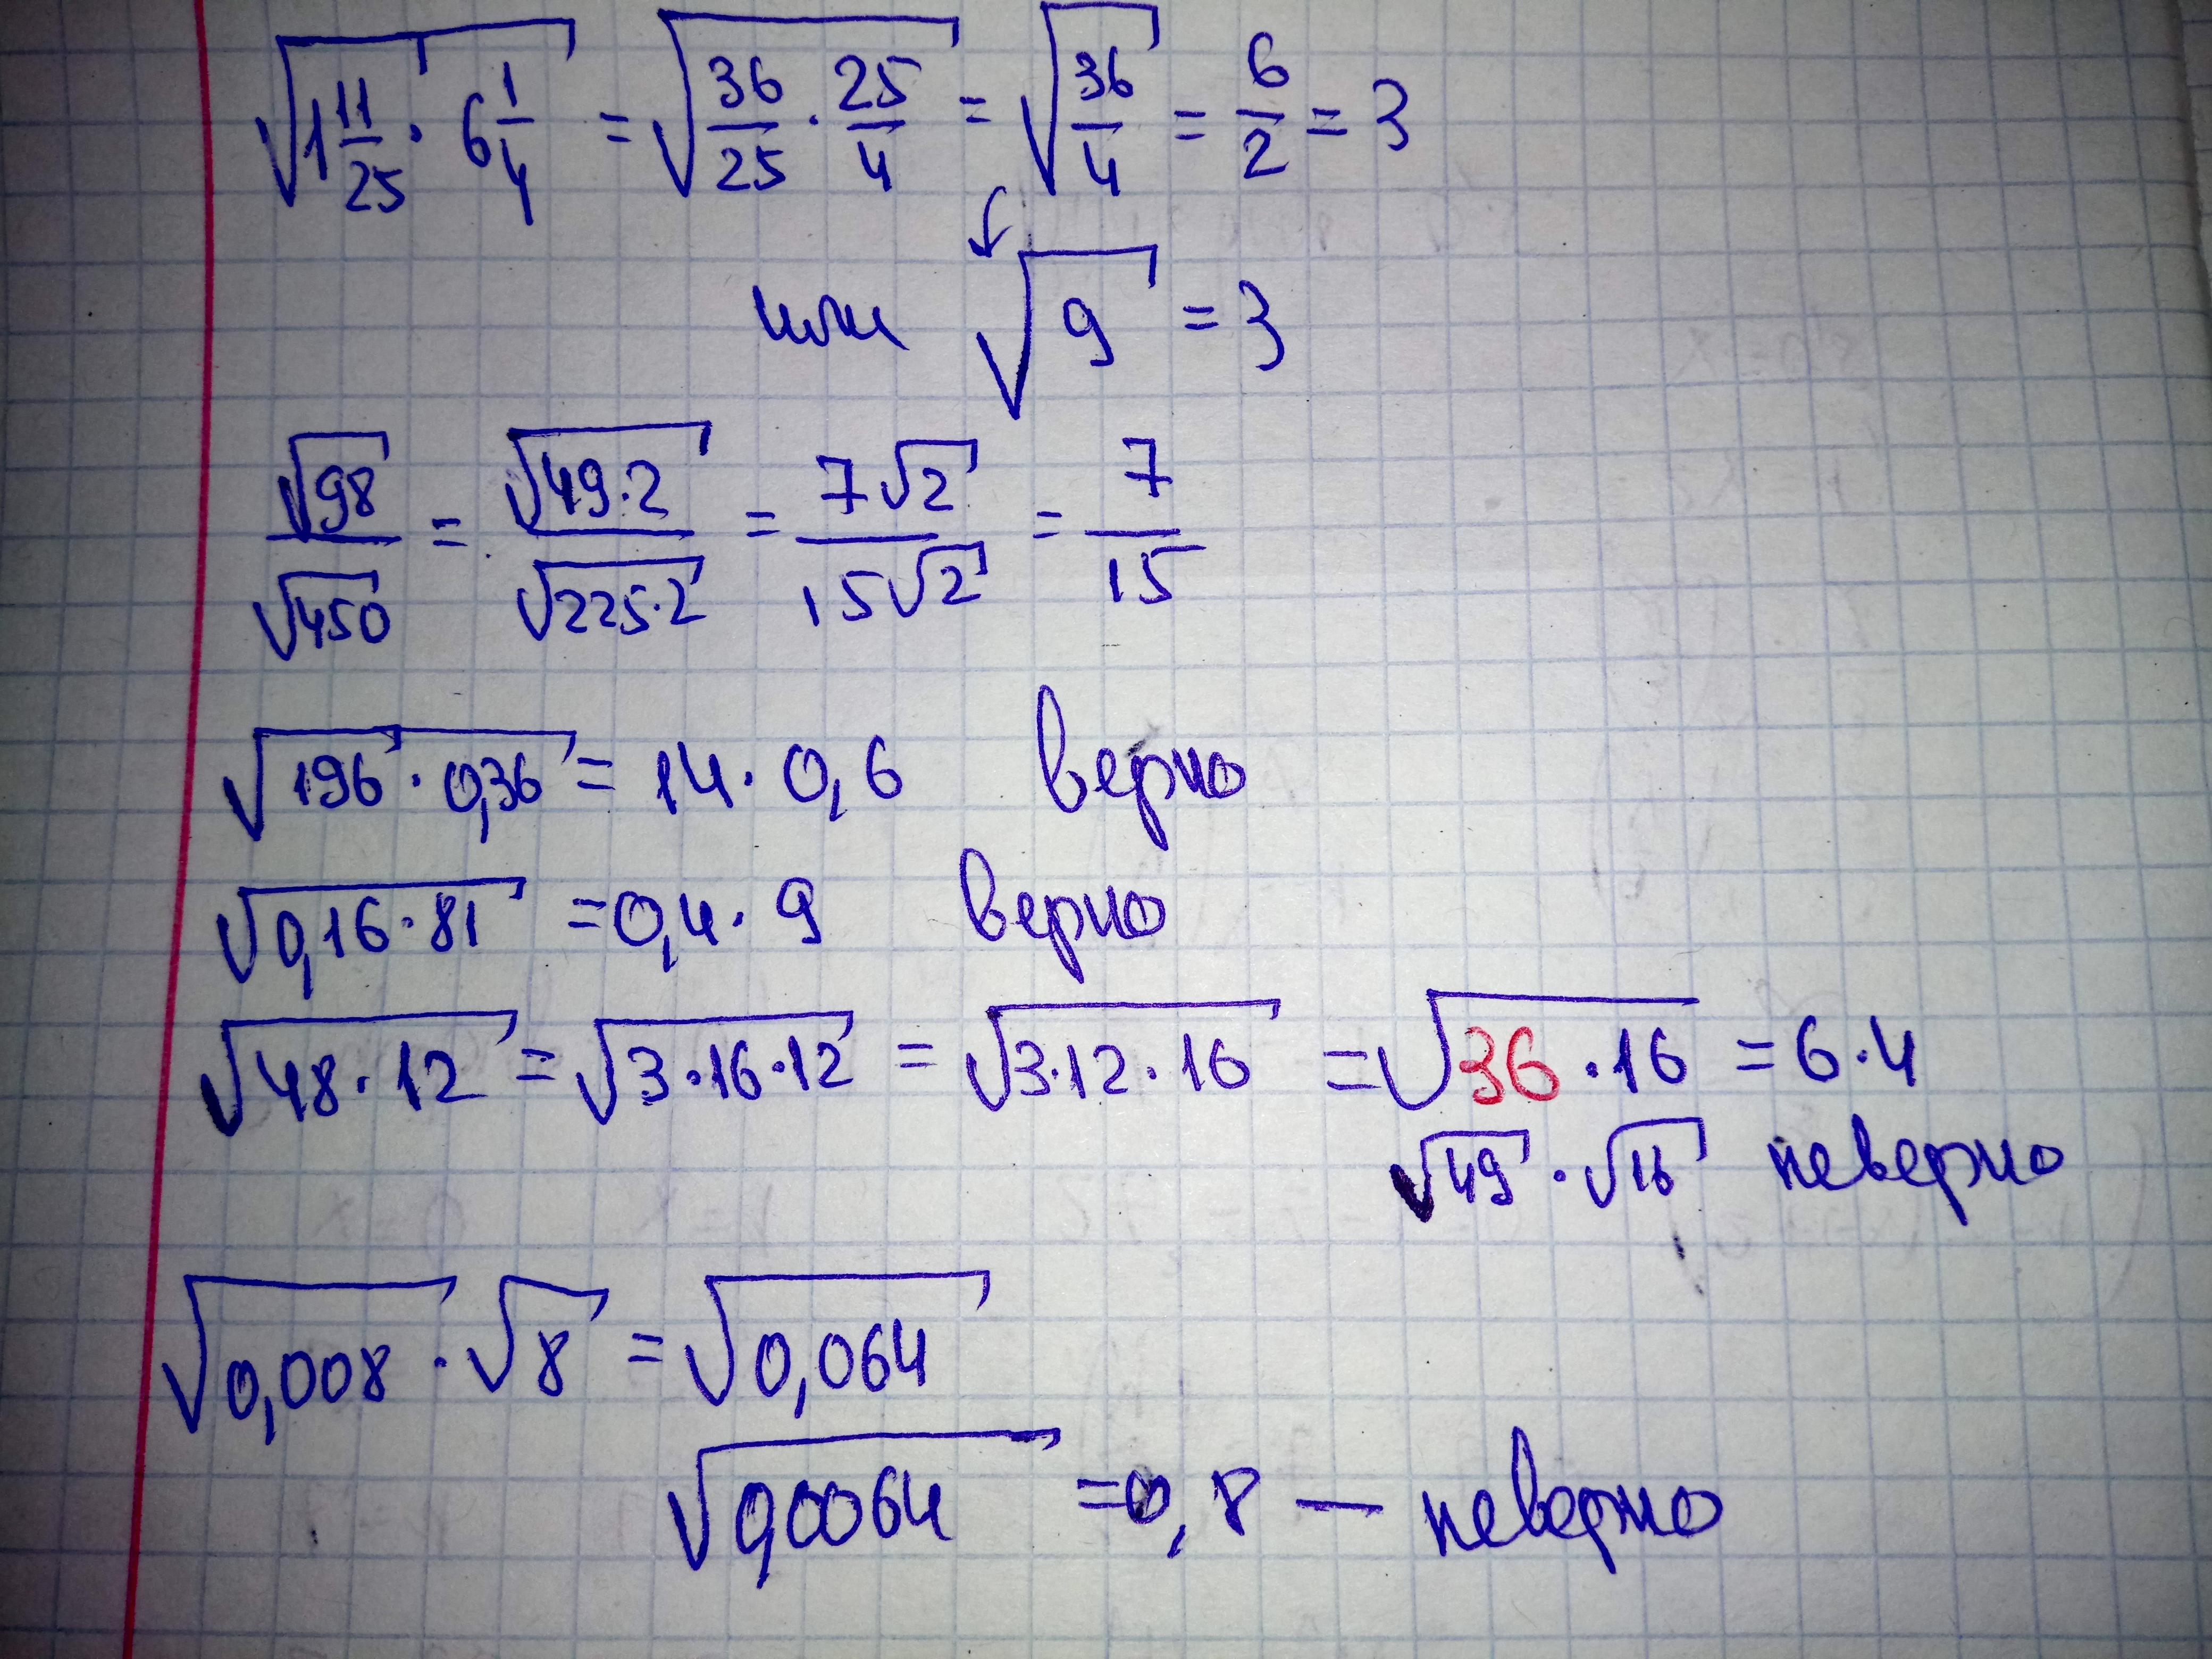 √(1 11/25 · 6 1/4) = √(36/25 · 25/4) = √(36/4) = 6/2 = 3
или √9 = 3
√98/√450 = √(49·2)/√(225·2) = 7√2/15√2 = 7/15
√(196 · 0,36) = 14 · 0,6 верно
√(0,16 · 81) = 0,4 · 9 верно
√(48 · 12) = √(3 · 16 · 12) = √(3 · 12 · 16) = √(36 · 16) = 6 · 4
√49 · √16 неверно
√0,008 · √8 = √0,064
√0,0064 = 0,8 — неверно